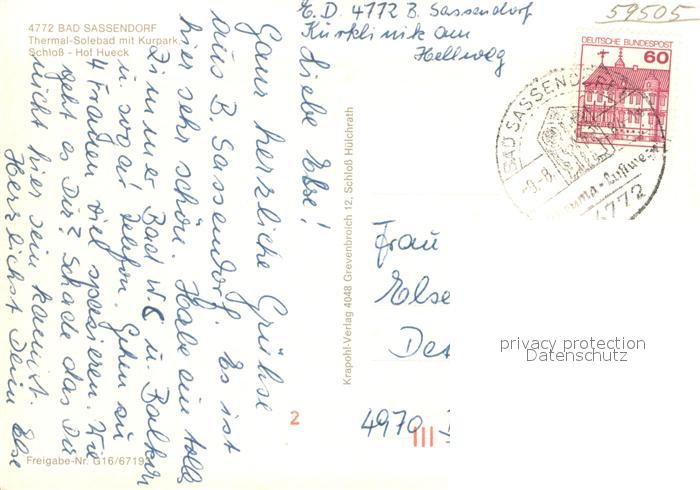 4772 BAD SASSENDORF
Thermal-Solebad mit Kurpark,
Schloß - Hof Hueck
Liebe Else!
Ganz herzliche Grühse
aus B. Sassendorf. Es ist
hier sehr schön. Habe ein tolles
Zimmer Bad W.C u. Balkon
u. sogar Telefon. Gehen zu
4 Frauen viel spazieren. Wie
geht es Dir? Schade das Du
nicht hier sein kannst.
Herzlichst Deine Else
Freigabe-Nr. G16/6719
Krapohl-Verlag 4048 Grevenbroich 12, Schloß Hülchrath
E. D. 4772 B. Sassendorf
Kurklinik am
Hellweg
59505
DEUTSCHE BUNDESPOST
60
BAD SASSENDORF
-9.-8.
4772
Frau
Else
4970
2
III
privacy protection
Datenschutz